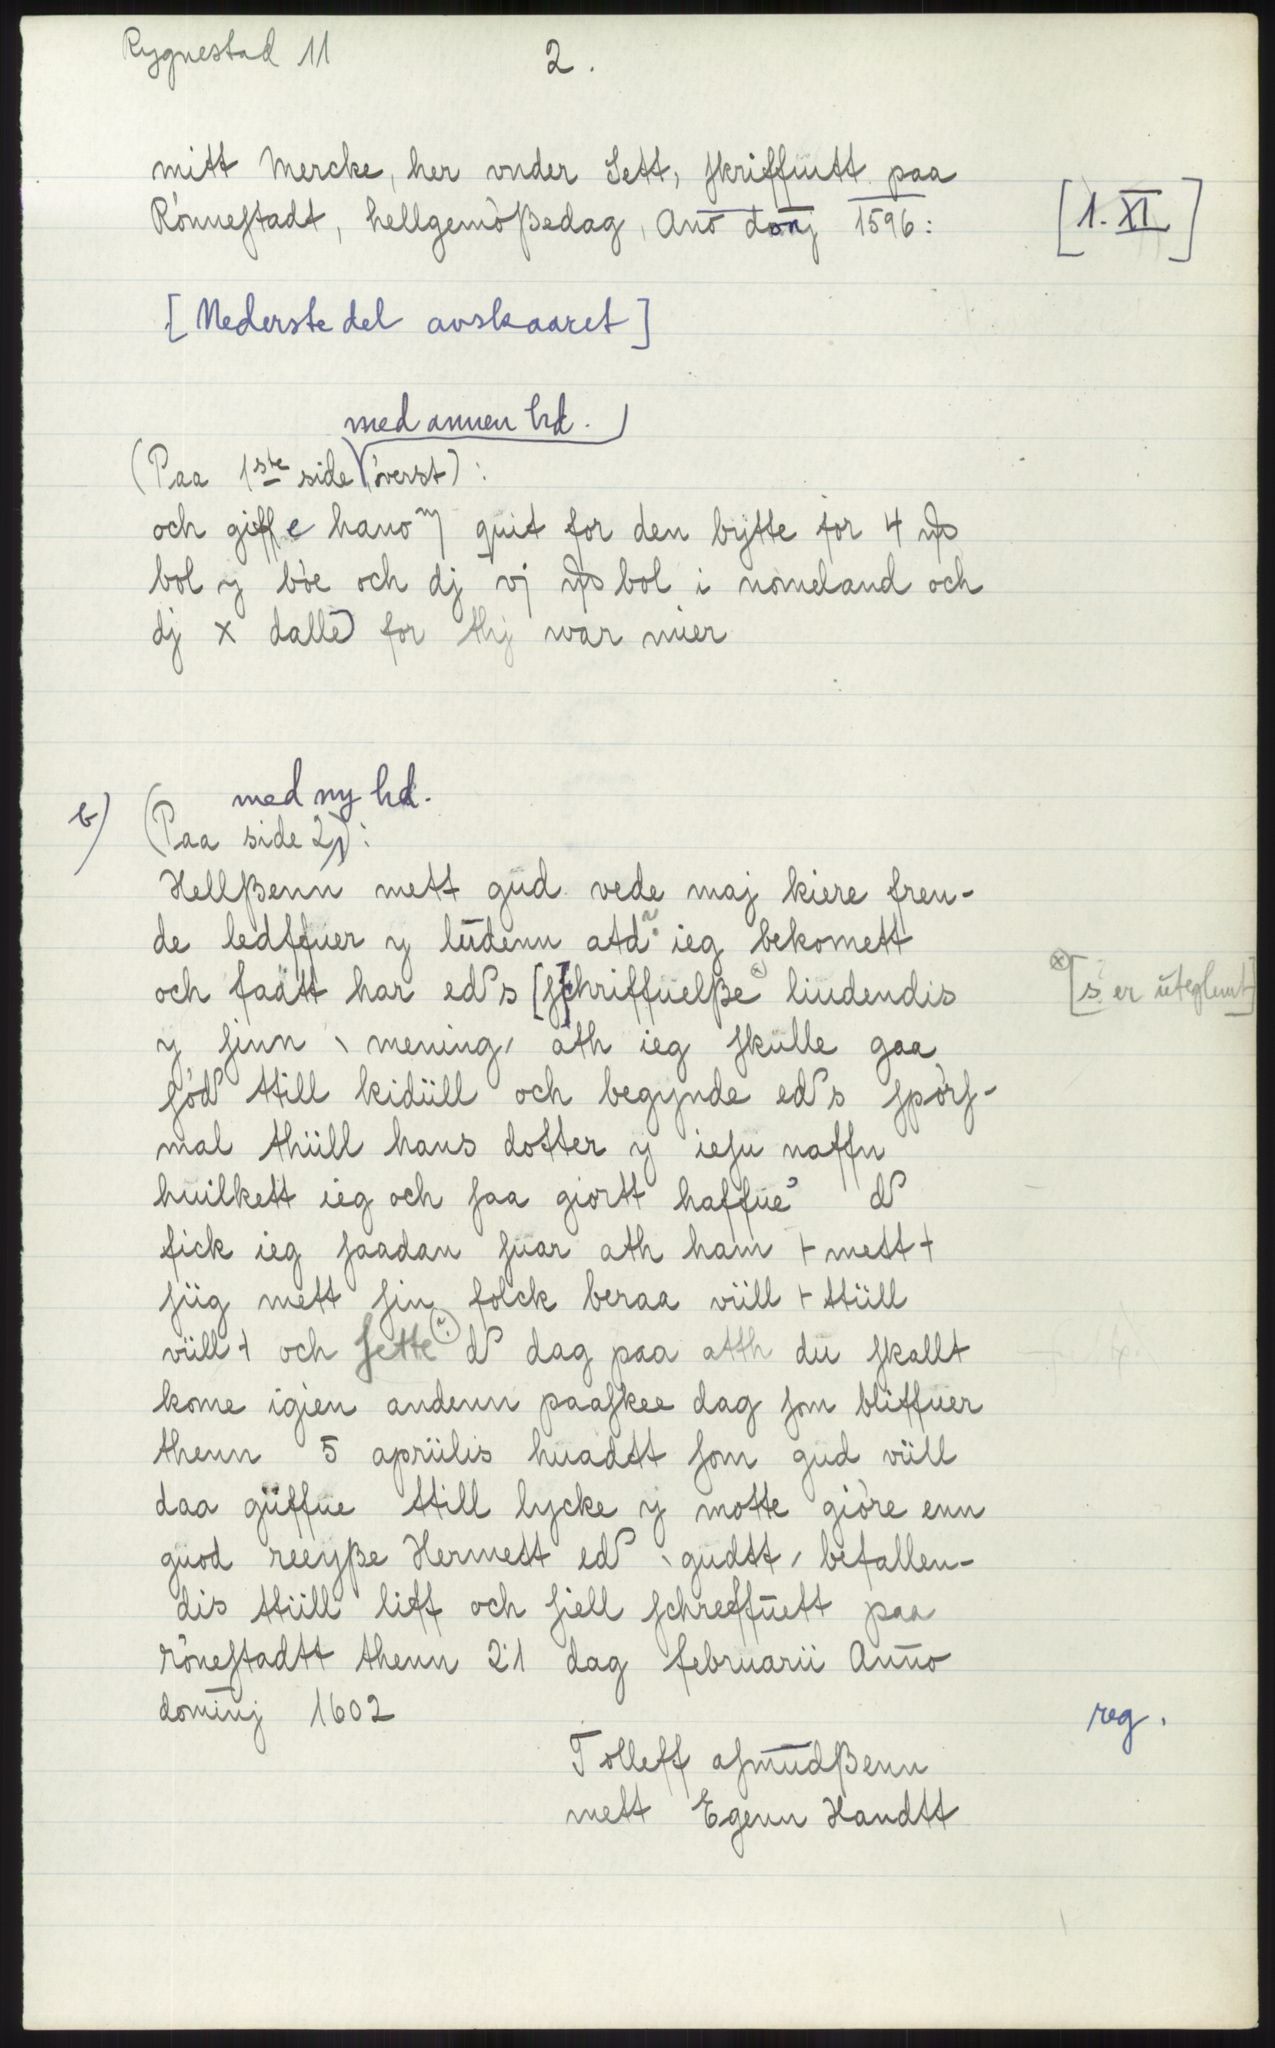 Rygnestad 11
2.
mitt Mercke, her vnder Sett, skriffuitt paa
Rónnestadt, hellgemóßedag, Ano donj 1596:
[1. XI]
[Nederste del avskaaret]
med annen hd.
(Paa 1ste side óverst):
och giffe hanom quit for den bytte for 4
bol y bóe och dj vj bol i nomeland och
dj x dalle for thj war mier
b)
med ny hd.
(Paa side 2):
Hellßenn mett gud vede maj kiere fren-
de ledffuer y lūdenn atd ieg bekomett
och faatt har ed s [s]chriffuelße x) liudendis
(x) [s er uteglemt]
y sinn mening, ath ieg skulle gaa
sód till kidüll och begynde ed s spórs-
mal thüll hans dotter y iesu naffn
huilkett ieg och saa giortt haffue d
fick ieg saadan suar ath ham + mett +
süg mett sin folck beraa vüll + ttüll
vüll + och sette d dag paa atth du skallt
kome igien andenn paaskee dag som bliffuer
thenn 5 aprülis huadtt som gud vüll
daa güffue ttill lycke y motte gióre enn
guod reeyße Hermett ed gudtt, befallen-
dis ttüll liff och siell schreffuett paa
rónestadtt thenn 21 dag februarii Anno
dominj 1602
reg.
Tolleff asmudßenn
mett Egenn Handtt